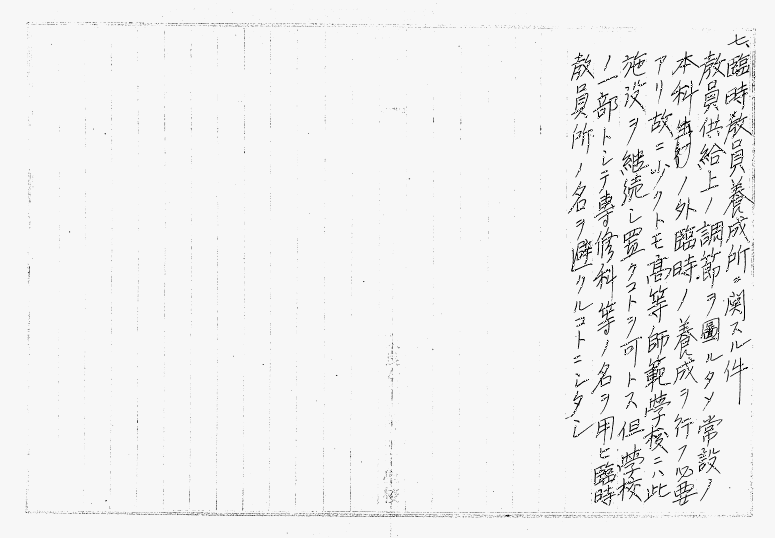 七、臨時教員養成所ニ関スル件
教員供給上ノ調節ヲ圖ルタメ常設ノ
本科ノ外臨時ノ養成ヲ行フ必要
アリ故ニ少クトモ高等師範学校ニハ此
施設ヲ継続シ置クコトヲ可トス但学校
ノ一部トシテ専修科等ノ名ヲ用ヒ臨時
教員所ノ名ヲ避クルコトニシタシ